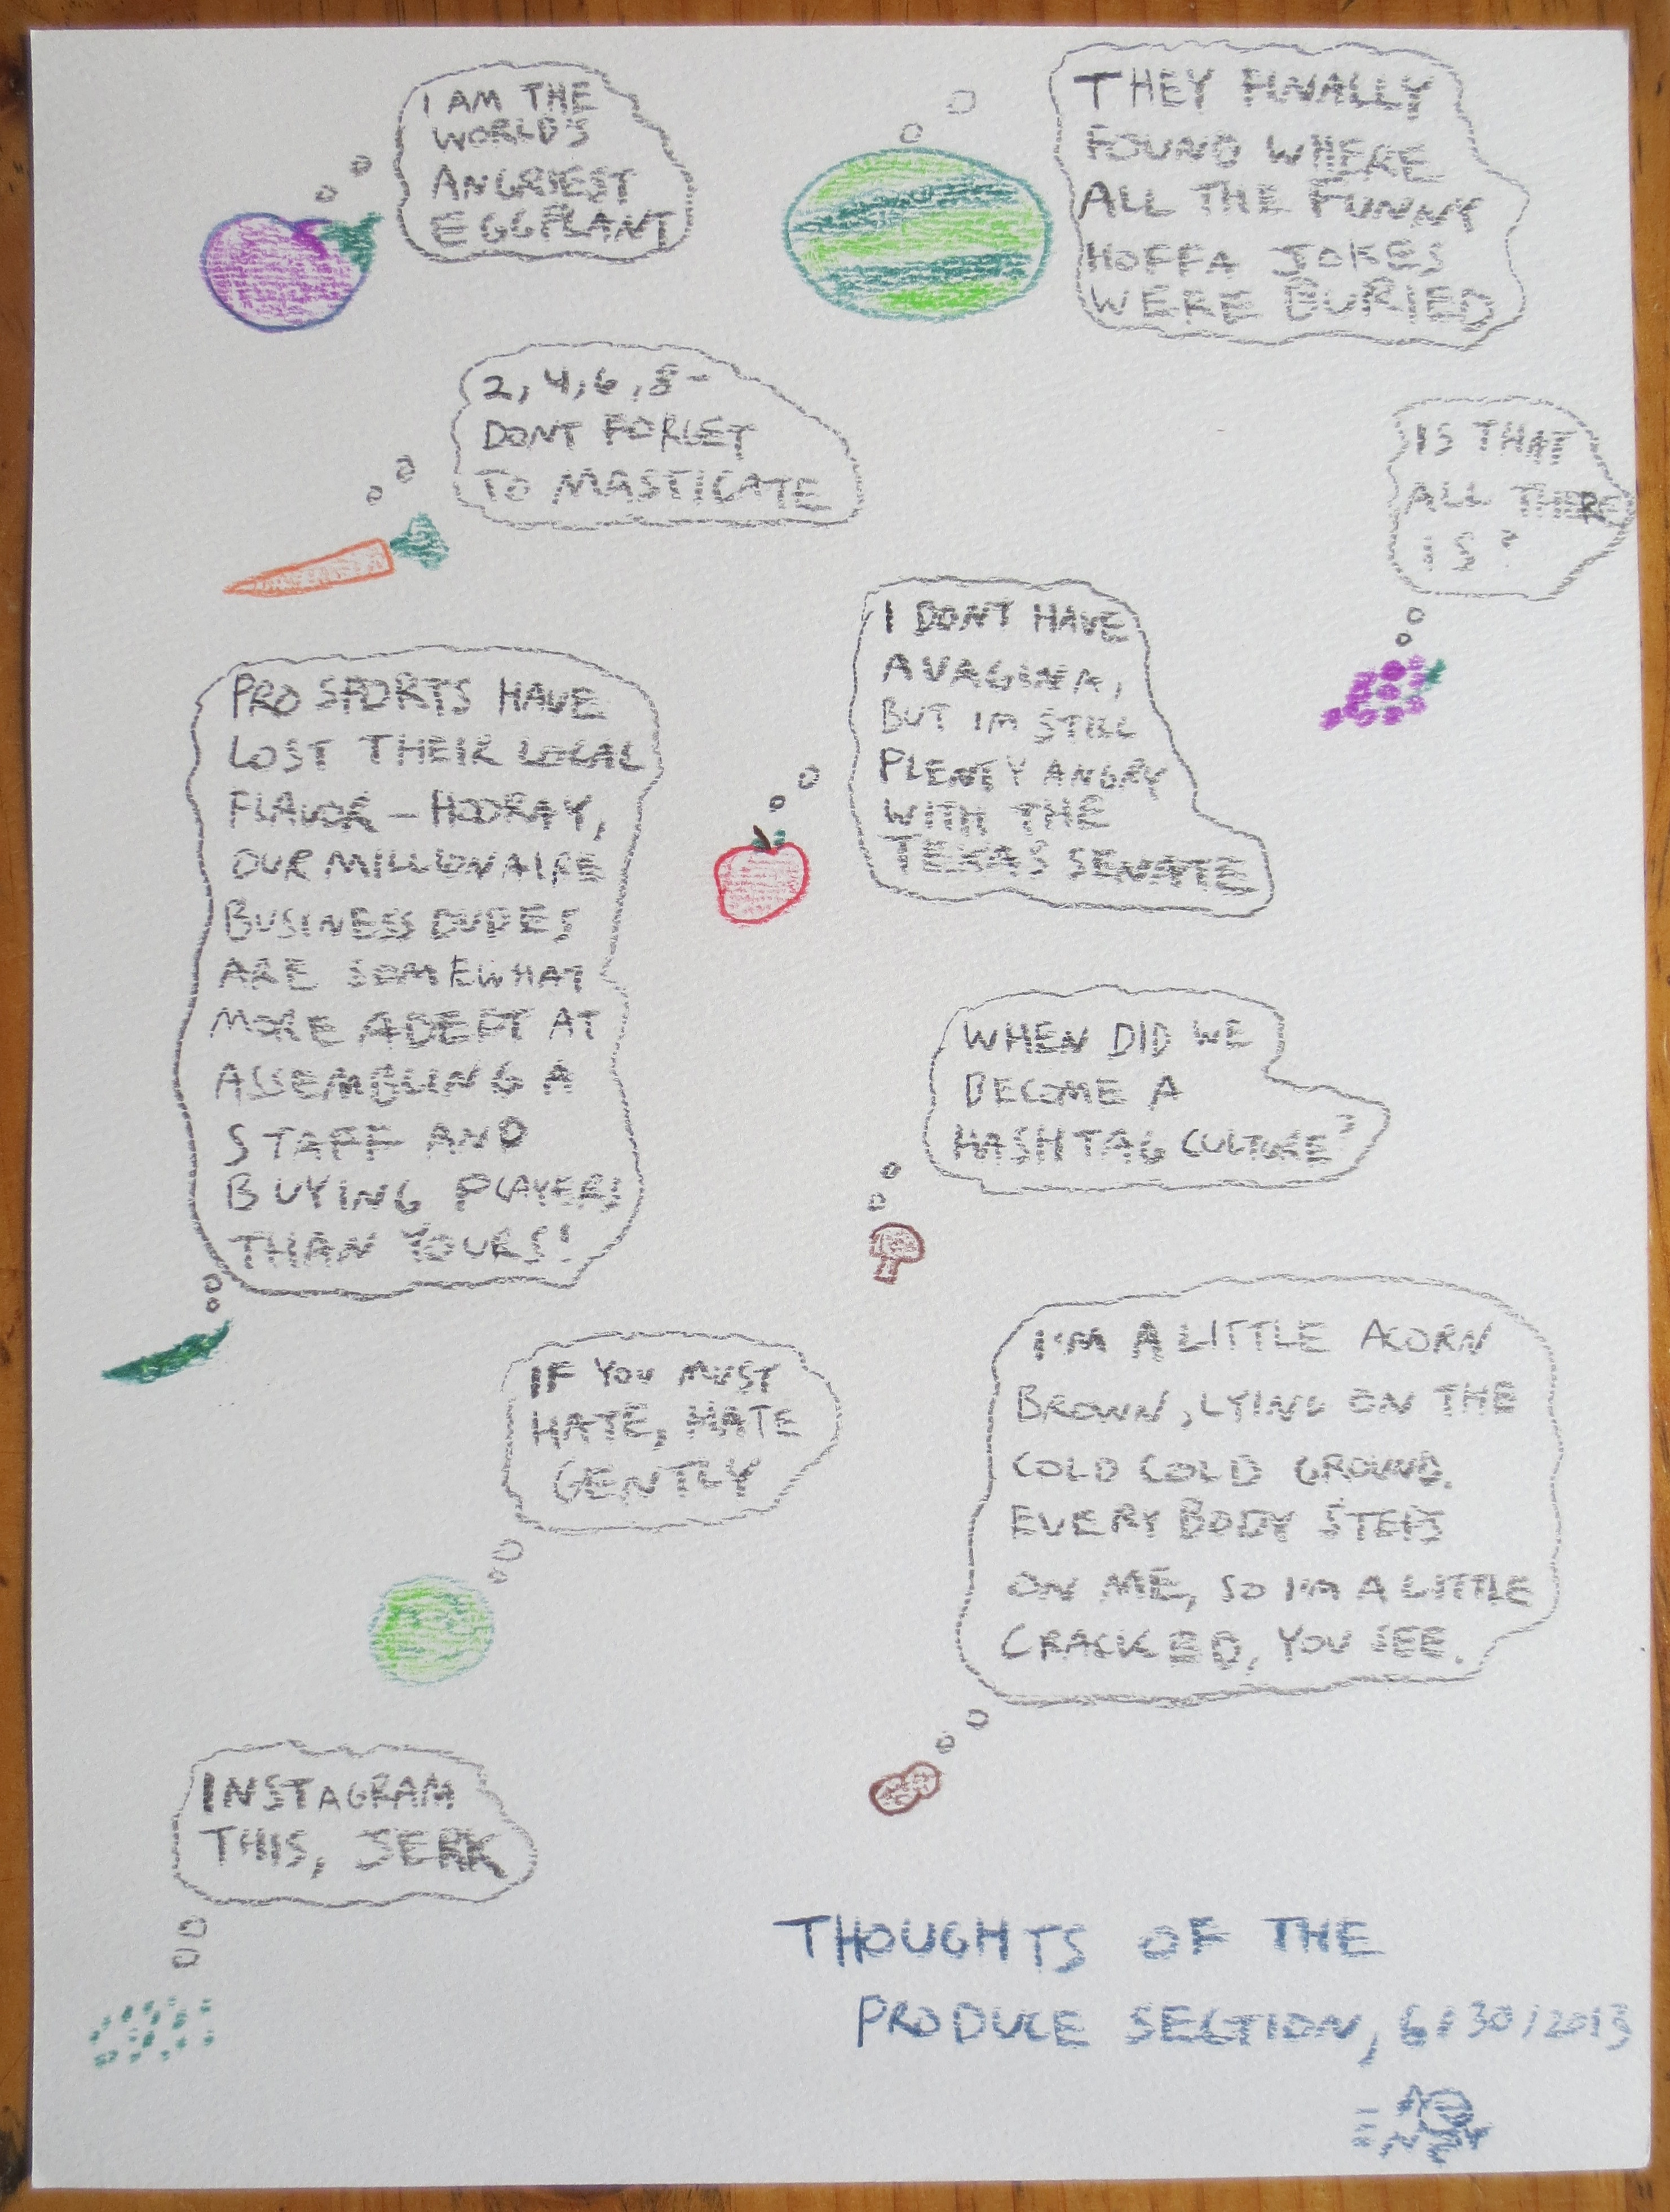 I AM THE
WORLD'S
ANGRIEST
EGGPLANT
THEY FINALLY
FOUND WHERE
ALL THE FUNNY
HOFFA JOKES
WERE BURIED
2, 4, 6, 8 -
DONT FORGET
TO MASTICATE
IS THAT
ALL THERE
IS?
I DONT HAVE
A VAGINA,
BUT IM STILL
PLENTY ANGRY
WITH THE
TEXAS SENATE
PRO SPORTS HAVE
LOST THEIR LOCAL
FLAVOR - HOORAY,
OUR MILLIONAIRE
BUSINESS DUDES
ARE SOMEWHAT
MORE ADEPT AT
ASSEMBLING A
STAFF AND
BUYING PLAYERS
THAN YOURS!
WHEN DID WE
BECOME A
HASHTAG CULTURE?
IF YOU MUST
HATE, HATE
GENTLY
I'M A LITTLE ACORN
BROWN, LYING ON THE
COLD COLD GROUND.
EVERYBODY STEPS
ON ME, SO I'M A LITTLE
CRACKED, YOU SEE.
INSTAGRAM
THIS, JERK
THOUGHTS OF THE
PRODUCE SECTION, 6/30/2013